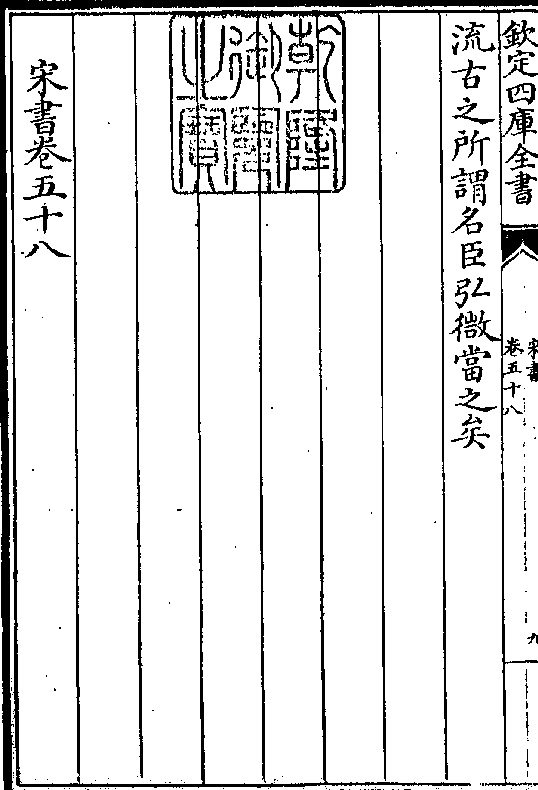 欽定四庫全書
宋書
卷五十八
九
流古之所謂名臣弘微當之矣
乾隆御覽之寶
宋書卷五十八